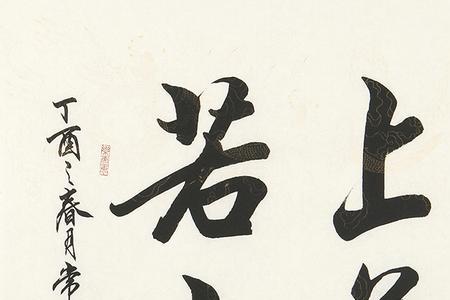 上
若
丁酉之春月常